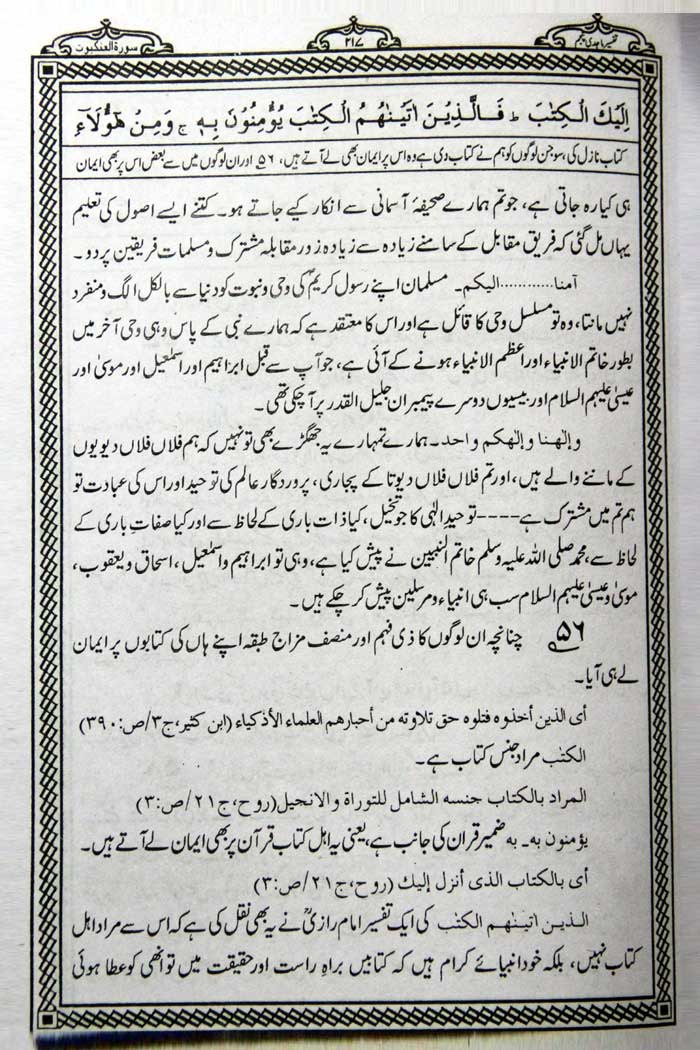 تفسیر ماجدی پنجم
۲۱۷
سورة العنکبوت
اِلَیْكَ الْكِتٰبَ ؕ فَالَّذِیْنَ اٰتَیْنٰهُمُ الْكِتٰبَ یُؤْمِنُوْنَ بِهٖ ۚ وَمِنْ هٰۤؤُلَآءِ
کتاب نازل کی، سو جن لوگوں کو ہم نے کتاب دی ہے وہ اس پر ایمان بھی لے آتے ہیں، ۵۶ اور ان لوگوں میں سے بعض اس پر بھی ایمان
ہی کیا رہ جاتی ہے، جو تم ہمارے صحیفۂ آسمانی سے انکار کیے جاتے ہو۔ کتنے ایسے اصول کی تعلیم
یہاں مل گئی کہ فریق مقابل کے سامنے زیادہ سے زیادہ زور مقابلہ مشترک و مسلمات فریقین پر دو۔
آمنا............الیکم۔ مسلمان اپنے رسول کریمؐ کی وحی ونبوت کو دنیا سے بالکل الگ و منفرد
نہیں مانتا، وہ تو مسلسل وحی کا قائل ہے اور اس کا معتقد ہے کہ ہمارے نبی کے پاس وہی وحی آخر میں
بطور خاتم الانبیاء اور اعظم الانبیاء ہونے کے آئی ہے، جو آپ سے قبل ابراہیم اور اسمٰعیل اور موسیٰ اور
عیسیٰ علیہم السلام اور بیسیوں دوسرے پیمبران جلیل القدر پر آچکی تھی۔
وإلهنا وإلهكم واحد۔ ہمارے تمہارے یہ جھگڑے بھی تو نہیں کہ ہم فلاں فلاں دیویوں
کے ماننے والے ہیں، اور تم فلاں فلاں دیوتا کے پجاری، پروردگار عالم کی توحید اور اس کی عبادت تو
ہم تم میں مشترک ہے----توحیدِ الٰہی کا جو تخیل، کیا ذات باری کے لحاظ سے اور کیا صفاتِ باری کے
لحاظ سے، محمد صلی اللہ علیہ وسلم خاتم النّبیین نے پیش کیا ہے، وہی تو ابراہیم واسمٰعیل، اسحاق ویعقوب،
موسیٰ وعیسیٰ علیہم السلام سب ہی انبیاء ومرسلین پیش کرچکے ہیں۔
۵۶ چنانچہ ان لوگوں کا ذی فہم اور منصف مزاج طبقہ اپنے ہاں کی کتابوں پر ایمان
لے ہی آیا۔
أی الذین أخذوه فتلوه حق تلاوته من أحبارهم العلماء الأذکیاء (ابن کثیر، ج۳/ص:۳۹۰)
الکتٰب مراد جنس کتاب ہے۔
المراد بالکتاب جنسه الشامل للتوراة والانجیل (روح، ج۲۱/ص:۳)
یؤمنون به۔ به ضمیر قرآن کی جانب ہے، یعنی یہ اہل کتاب قرآن پر بھی ایمان لے آتے ہیں۔
أی بالکتاب الذی أنزل إلیك (روح، ج۲۱/ص:۳)
الذین اتینٰهم الکتٰب کی ایک تفسیر امام رازیؒ نے یہ بھی نقل کی ہے کہ اس سے مراد اہل
کتاب نہیں، بلکہ خود انبیائے کرام ہیں کہ کتابیں براہِ راست اور حقیقت میں تو انھی کو عطا ہوئی